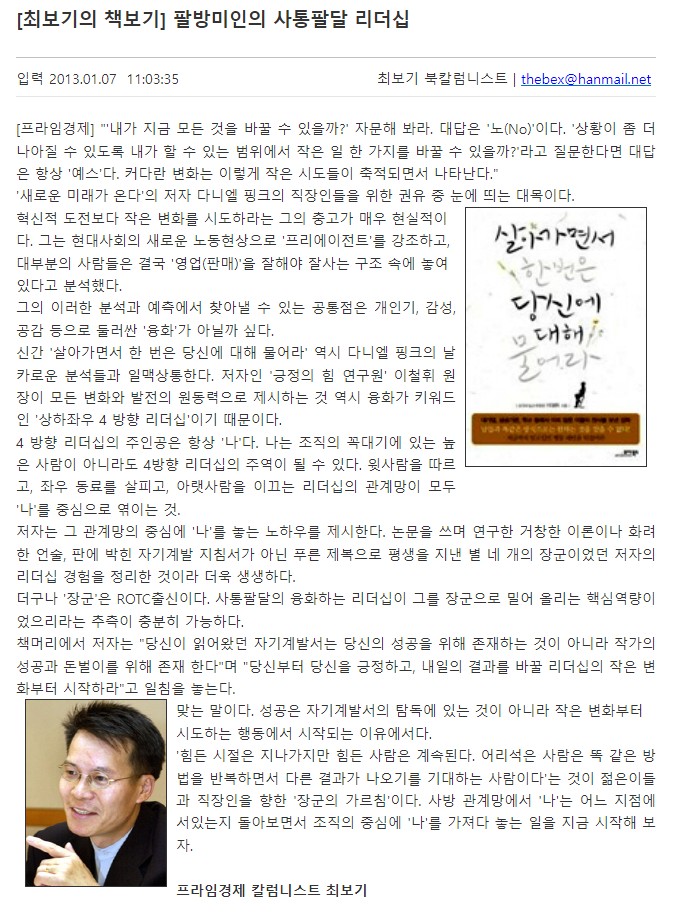 [최보기의 책보기] 팔방미인의 사통팔달 리더십
입력 2013.01.07 11:03:35
최보기 북칼럼니스트 | thebex@hanmail.net
[프라임경제] "'내가 지금 모든 것을 바꿀 수 있을까?' 자문해 봐라. 대답은 '노(No)'이다. '상황이 좀 더
나아질 수 있도록 내가 할 수 있는 범위에서 작은 일 한 가지를 바꿀 수 있을까?'라고 질문한다면 대답
은 항상 '예스'다. 커다란 변화는 이렇게 작은 시도들이 축적되면서 나타난다."
'새로운 미래가 온다'의 저자 다니엘 핑크의 직장인들을 위한 권유 중 눈에 띄는 대목이다.
혁신적 도전보다 작은 변화를 시도하라는 그의 충고가 매우 현실적이
다. 그는 현대사회의 새로운 노동현상으로 '프리에이전트'를 강조하고,
대부분의 사람들은 결국 '영업(판매)'을 잘해야 잘사는 구조 속에 놓여
있다고 분석했다.
그의 이러한 분석과 예측에서 찾아낼 수 있는 공통점은 개인기, 감성,
공감 등으로 둘러싼 '융화'가 아닐까 싶다.
신간 '살아가면서 한 번은 당신에 대해 물어라' 역시 다니엘 핑크의 날
카로운 분석들과 일맥상통한다. 저자인 '긍정의 힘 연구원' 이철휘 원
장이 모든 변화와 발전의 원동력으로 제시하는 것 역시 융화가 키워드
인 '상하좌우 4 방향 리더십'이기 때문이다.
4 방향 리더십의 주인공은 항상 '나'다. 나는 조직의 꼭대기에 있는 높
은 사람이 아니라도 4방향 리더십의 주역이 될 수 있다. 윗사람을 따르
고, 좌우 동료를 살피고, 아랫사람을 이끄는 리더십의 관계망이 모두
'나'를 중심으로 엮이는 것.
살아가면서
한 번은
당신에
대해
물어라
저자는 그 관계망의 중심에 '나'를 놓는 노하우를 제시한다. 논문을 쓰며 연구한 거창한 이론이나 화려
한 언술, 판에 박힌 자기계발 지침서가 아닌 푸른 제복으로 평생을 지낸 별 네 개의 장군이었던 저자의
리더십 경험을 정리한 것이라 더욱 생생하다.
더구나 '장군'은 ROTC출신이다. 사통팔달의 융화하는 리더십이 그를 장군으로 밀어 올리는 핵심역량이
었으리라는 추측이 충분히 가능하다.
책머리에서 저자는 "당신이 읽어왔던 자기계발서는 당신의 성공을 위해 존재하는 것이 아니라 작가의
성공과 돈벌이를 위해 존재 한다"며 "당신부터 당신을 긍정하고, 내일의 결과를 바꿀 리더십의 작은 변
화부터 시작하라"고 일침을 놓는다.
맞는 말이다. 성공은 자기계발서의 탐독에 있는 것이 아니라 작은 변화부터
시도하는 행동에서 시작되는 이유에서다.
'힘든 시절은 지나가지만 힘든 사람은 계속된다. 어리석은 사람은 똑 같은 방
법을 반복하면서 다른 결과가 나오기를 기대하는 사람이다'는 것이 젊은이들
과 직장인을 향한 '장군의 가르침'이다. 사방 관계망에서 '나'는 어느 지점에
서있는지 돌아보면서 조직의 중심에 '나'를 가져다 놓는 일을 지금 시작해 보
자.
프라임경제 칼럼니스트 최보기